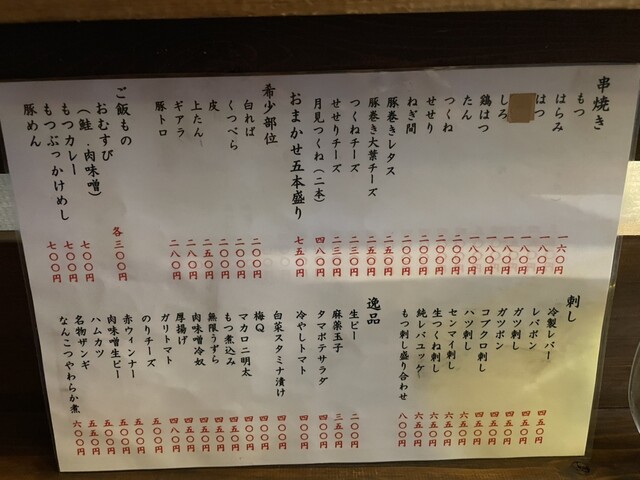 串焼き
もつ 一六〇円
はらみ 一八〇円
はつ 一八〇円
一八〇円
しろ 一八〇円
鶏はつ 一八〇円
たん 二〇〇円
つくね 二〇〇円
せせり 二〇〇円
ねぎ間 二〇〇円
豚巻きレタス 二五〇円
豚巻き大葉チーズ 二五〇円
つくねチーズ 二三〇円
せせりチーズ 二三〇円
月見つくね(二本) 四八〇円
おまかせ五本盛り 七五〇円
希少部位
白ればー 二〇〇円
くつべら 二〇〇円
皮 二〇〇円
上たん 二五〇円
ギアラ 二八〇円
豚トロ 二八〇円
ご飯もの
おむすび
(鮭.肉味噌) 各三〇〇円
もつカレー 七〇〇円
もつぶっかけめし 七〇〇円
豚めん 七〇〇円
刺し
冷製レバー 四五〇円
レバポン 四五〇円
ガツ刺し 四五〇円
ガツポン 四五〇円
コブクロ刺し 四五〇円
ハツ刺し 四五〇円
センマイ刺し 六五〇円
生つくね刺し 六五〇円
純レバユッケ 六五〇円
もつ刺し盛り合わせ 八〇〇円
逸品
生ピー 二〇〇円
麻薬玉子 三五〇円
タマポテサラダ 四〇〇円
冷やしトマト 四〇〇円
白菜スタミナ漬け 四〇〇円
梅Q 四〇〇円
マカロニ明太 四〇〇円
もつ煮込み 四五〇円
無限うずら 四五〇円
肉味噌冷奴 四五〇円
厚揚げ 四五〇円
ガリトマト 四八〇円
のりチーズ 五〇〇円
赤ウィンナー 五〇〇円
肉味噌生ピー 五五〇円
ハムカツ 五五〇円
名物ザンギ 五五〇円
なんこつやわらか煮 六〇〇円